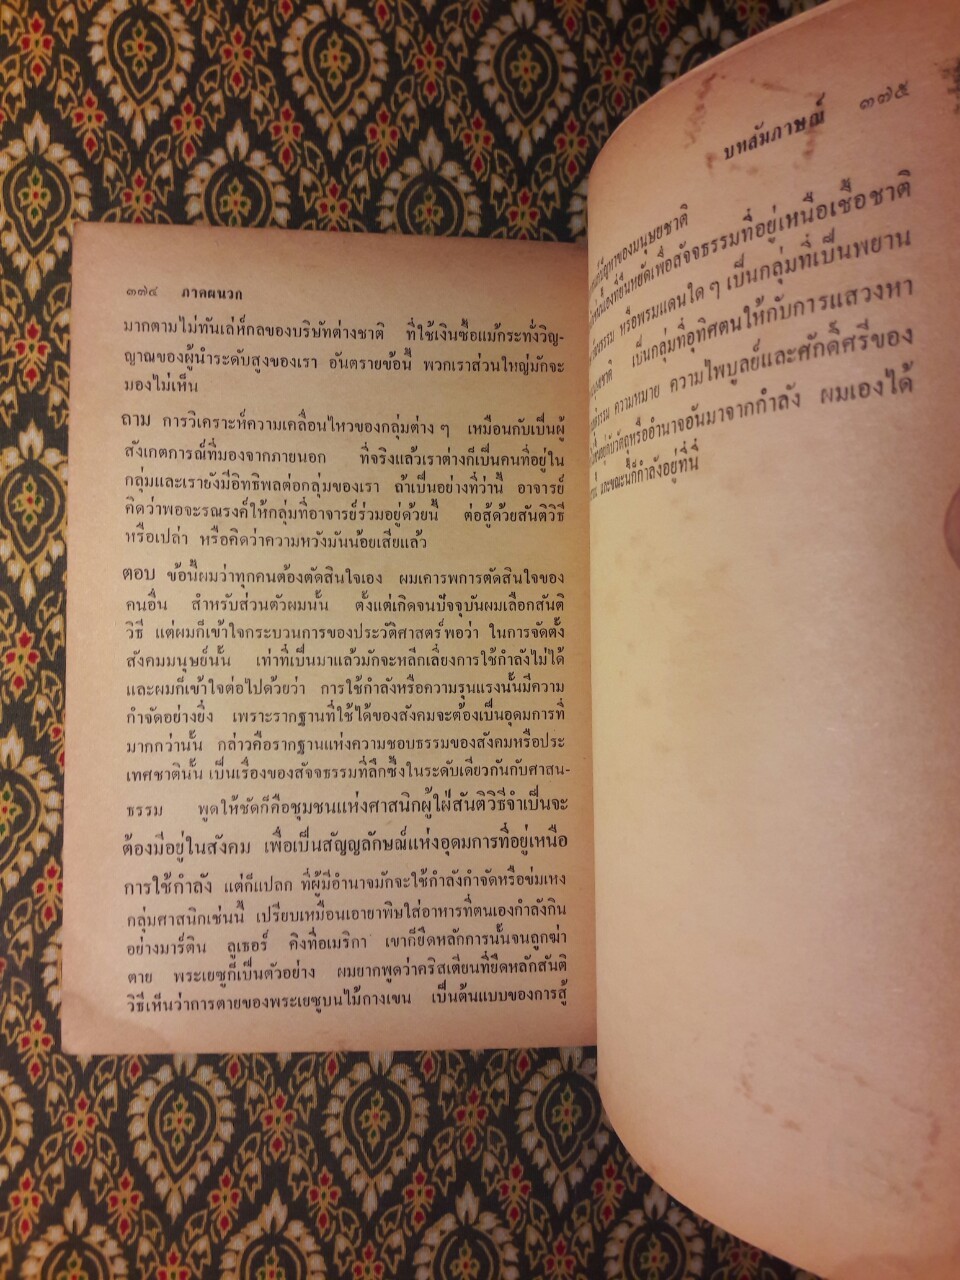 ๓๗๔ ภาคผนวก
มากตามไม่ทันเล่ห์กลของบริษัทต่างชาติ ที่ใช้เงินซื้อแม้กระทั่งวิญ-
ญาณของผู้นำระดับสูงของเรา อันตรายข้อนี้ พวกเราส่วนใหญ่มักจะ
มองไม่เห็น
ถาม การวิเคราะห์ความเคลื่อนไหวของกลุ่มต่าง ๆ เหมือนกับเป็นผู้
สังเกตการณ์ที่มองจากภายนอก ที่จริงแล้วเราต่างก็เป็นคนที่อยู่ใน
กลุ่มและเรายังมีอิทธิพลต่อกลุ่มของเรา ถ้าเป็นอย่างที่ว่านี้ อาจารย์
คิดว่าพอจะรณรงค์ให้กลุ่มที่อาจารย์ร่วมอยู่ด้วยนี้ ต่อสู้ด้วยสันติวิธี
หรือเปล่า หรือคิดว่าความหวังมันน้อยเสียแล้ว
ตอบ ข้อนี้ผมว่าทุกคนต้องตัดสินใจเอง ผมเคารพการตัดสินใจของ
คนอื่น สำหรับส่วนตัวผมนั้น ตั้งแต่เกิดจนปัจจุบันผมเลือกสันติ
วิธี แต่ผมก็เข้าใจกระบวนการของประวัติศาสตร์พอว่า ในการจัดตั้ง
สังคมมนุษย์นั้น เท่าที่เป็นมาแล้วมักจะหลีกเลี่ยงการใช้กำลังไม่ได้
และผมก็เข้าใจต่อไปด้วยว่า การใช้กำลังหรือความรุนแรงนั้นมีความ
กำจัดอย่างยิ่ง เพราะรากฐานที่ใช้ได้ของสังคมจะต้องเป็นอุดมการที่
มากกว่านั้น กล่าวคือรากฐานแห่งความชอบธรรมของสังคมหรือประ
เทศชาตินั้น เป็นเรื่องของสัจจธรรมที่ลึกซึ้งในระดับเดียวกันกับศาสน-
ธรรม พูดให้ชัดก็คือชุมชนแห่งศาสนิกผู้ใฝ่สันติวิธีจำเป็นจะ
ต้องมีอยู่ในสังคม เพื่อเป็นสัญญลักษณ์แห่งอุดมการที่อยู่เหนือ
การใช้กำลัง แต่ก็แปลก ที่ผู้มีอำนาจมักจะใช้กำลังกำจัดหรือข่มเหง
กลุ่มศาสนิกเช่นนี้ เปรียบเหมือนเอายาพิษใส่อาหารที่ตนเองกำลังกิน
อย่างมาร์ติน ลูเธอร์ คิงที่อเมริกา เขาก็ยึดหลักการนั้นจนถูกฆ่า
ตาย พระเยซูก็เป็นตัวอย่าง ผมยากพูดว่าคริสเตียนที่ยึดหลักสันติ
วิธีเห็นว่าการตายของพระเยซูบนไม้กางเขน เป็นต้นแบบของการสู้
บทสัมภาษณ์ ๓๗๕
ปัญหาของมนุษยชาติ
ที่ยืนหยัดเพื่อสัจจธรรมที่อยู่เหนือเชื้อชาติ
หรือพรมแดนใด ๆ เป็นกลุ่มที่เป็นพยาน
เป็นกลุ่มที่อุทิศตนให้กับการแสวงหา
ความหมาย ความไพบูลย์และศักดิ์ศรีของ
วัตถุหรืออำนาจอันมาจากกำลัง ผมเองได้
และขณะนี้ก็กำลังอยู่ที่นี่